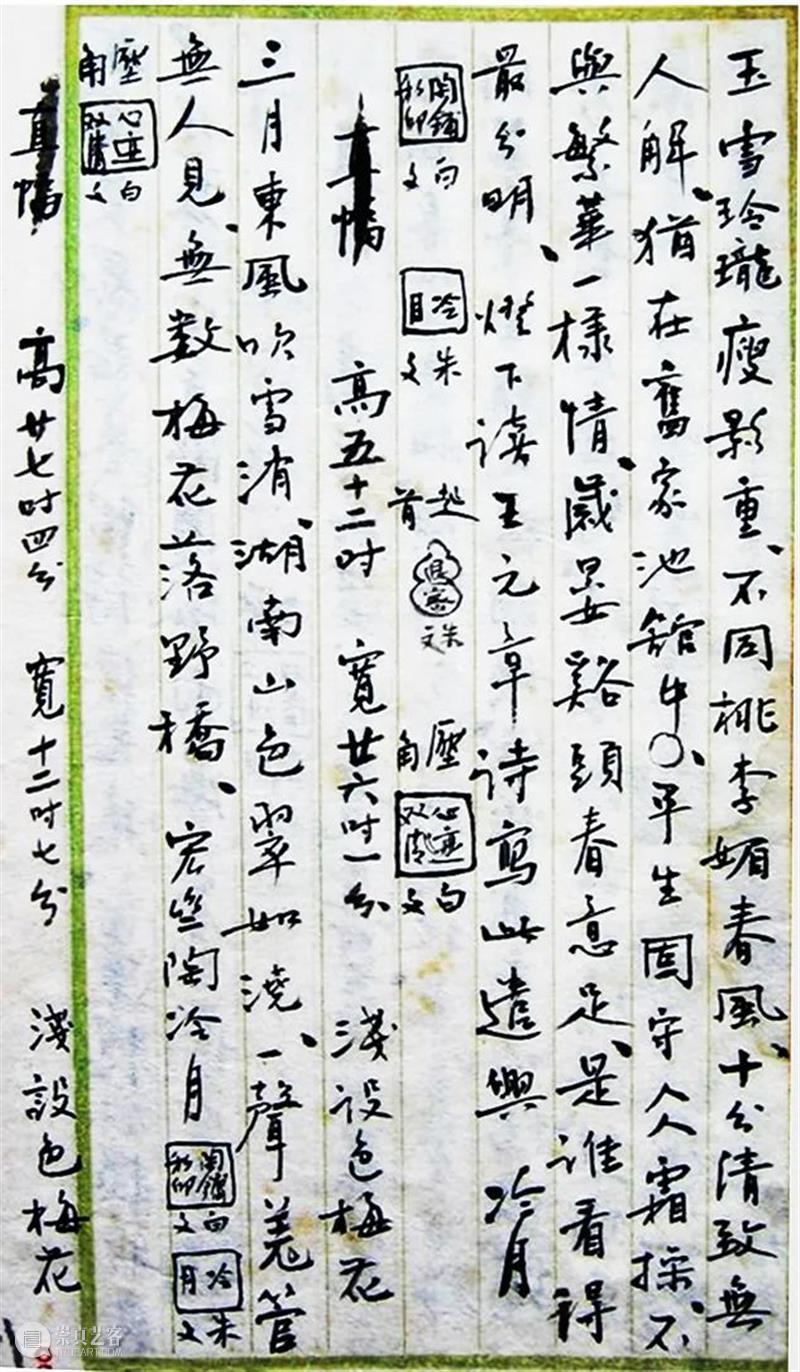 玉雪玲瓏瘦影重、不同桃李媚春風、十分清致無
人解、猶在舊家池館中〇平生固守人人霜操、不
與繁華一樣情、歲晏谿頭春意足、是誰看得
最分明、燈下讀王元章詩寫此遣興 冷月
陶鏞私印 白文 冷月 朱文 起首 朱文 壓角 心迹双清 白文
直幅 高五十二吋 寬廿六吋一分 淺設色梅花
三月東風吹雪消、湖南山色翠如澆、一聲羌管
無人見、無數梅花落野橋、陶冷月 陶鏞私印 白文 冷月 朱文
壓角 心迹双清 白文
直幅 高廿七吋四分 寬十二吋七分 淺設色梅花
崇真艺客